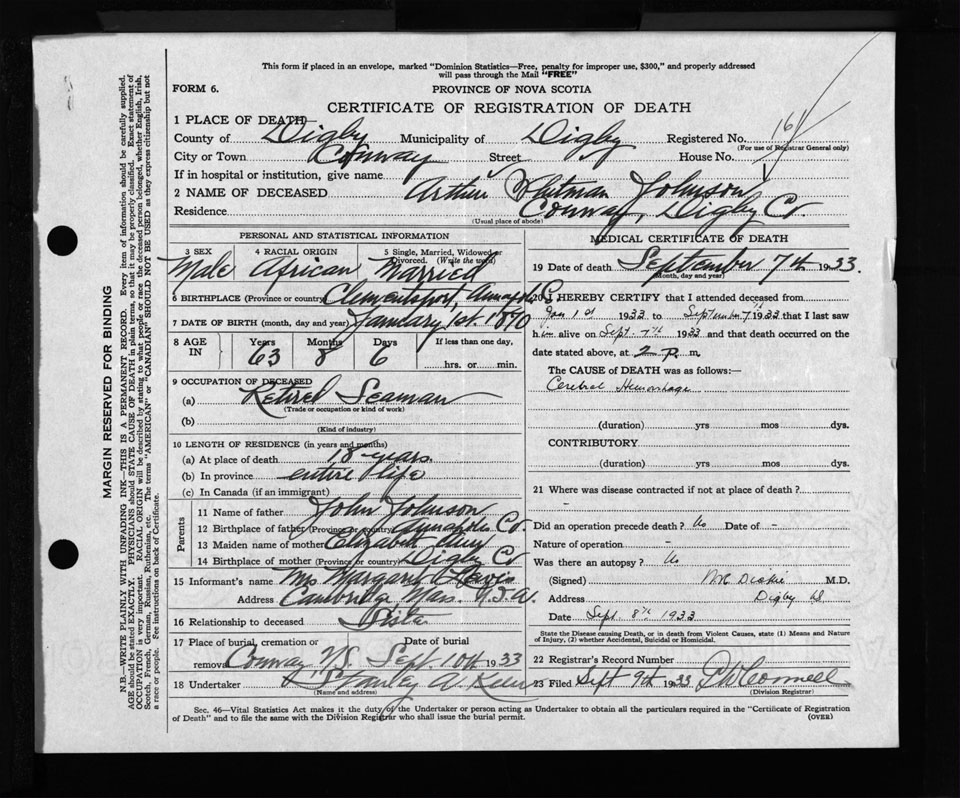 This form if placed in an envelope, marked "Dominion Statistics—Free, penalty for improper use, $300," and properly addressed
will pass through the Mail "FREE"
FORM 6.
PROVINCE OF NOVA SCOTIA
CERTIFICATE OF REGISTRATION OF DEATH
1 PLACE OF DEATH—
County of Digby Municipality of Digby Registered No. 161
(For use of Registrar General only)
City or Town Conway Street House No.
If in hospital or institution, give name
2 NAME OF DECEASED Arthur Whitman Johnson
Residence Conway, Digby Co.
(Usual place of abode)
PERSONAL AND STATISTICAL INFORMATION
3 SEX 4 RACIAL ORIGIN 5 Single, Married, Widowed or
Divorced. (Write the word)
Male African Married
6 BIRTHPLACE (Province or country) Clementsport, Annapolis
7 DATE OF BIRTH (month, day and year) January 1st. 1870
8 AGE IN Years Months Days If less than one day,
63 8 6 hrs. or min.
9 OCCUPATION OF DECEASED
(a) Retired Seaman
(Trade or occupation or kind of work)
(b)
(Kind of industry)
10 LENGTH OF RESIDENCE (in years and months)
(a) At place of death 18 years
(b) In province entire life
(c) In Canada (if an immigrant)
Parents
11 Name of father John Johnson
12 Birthplace of father (Province or country) Annapolis Co.
13 Maiden name of mother Elizabeth
14 Birthplace of mother (Province or country) Digby Co
15 Informant's name Mrs Margaret
Address Cambridge Mass. U.S.A.
16 Relationship to deceased Sister
17 Place of burial, cremation or removal Date of burial
Conway N.S. Sept. 10th 1933
18 Undertaker Stanley A.
(Name and address)
MEDICAL CERTIFICATE OF DEATH
19 Date of death September 7th 1933.
(Month, day and year)
20 I HEREBY CERTIFY that I attended deceased from
Jan 1st 1933 to September 7th 1933 that I last saw
him alive on Sept. 7th 1933 and that death occurred on the
date stated above, at 2 P. m.
The CAUSE of DEATH was as follows:—
Cerebral Hemorrhage
(duration) yrs mos dys.
CONTRIBUTORY
(duration) yrs. mos. dys.
21 Where was disease contracted if not at place of death?
-
Did an operation precede death? No Date of -
Nature of operation -
Was there an autopsy? No
(Signed) Dickie M.D.
Address Digby
Date Sept. 8th 1933
State the Disease causing Death, or in death from Violent Causes, state (1) Means and Nature
of Injury, (2) whether Accidental, Suicidal or Homicidal.
22 Registrar's Record Number
23 Filed Sept 9th 1933
(Division Registrar)
Sec. 46—Vital Statistics Act makes it the duty of the Undertaker or person acting as Undertaker to obtain all the particulars required in the "Certificate of Registration
of Death" and to file the same with the Division Registrar who shall issue the burial permit. (OVER)
MARGIN RESERVED FOR BINDING
N.B.—WRITE PLAINLY WITH UNFADING INK—THIS IS A PERMANENT RECORD. Every item of information should be carefully supplied.
AGE should be stated EXACTLY. PHYSICIANS should STATE CAUSE OF DEATH in plain terms, so that it may be properly classified. Exact statement of
OCCUPATION is very important. RACIAL ORIGIN will be described by stating to what people or race the deceased person belonged, whether English, Irish,
Scotch, French, German, Russian, Ruthenian, etc. The terms "AMERICAN" or "CANADIAN" SHOULD NOT BE USED as they express citizenship but not
a race or people. See instructions on back of Certificate.